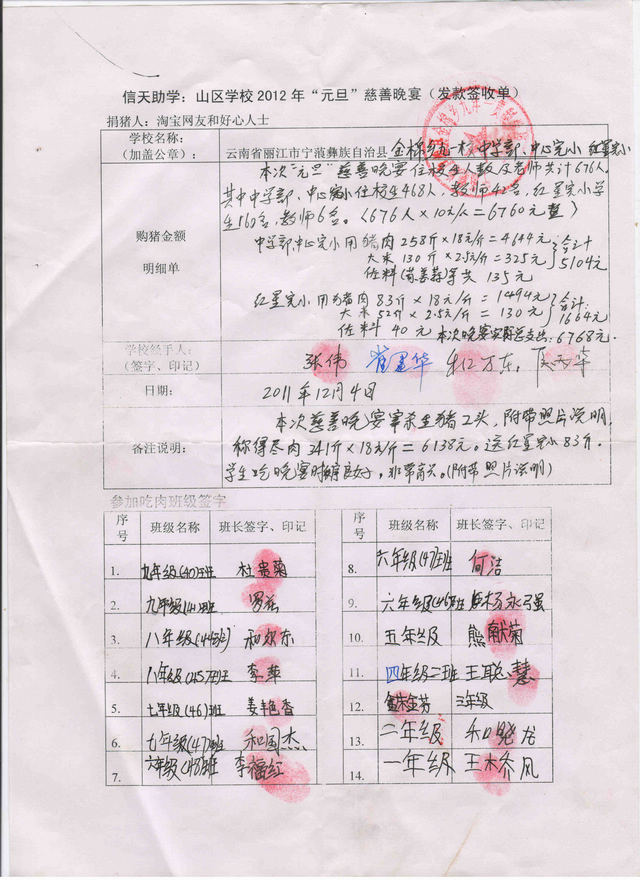 信天助学：山区学校2012年“元旦”慈善晚宴（发款签收单）
捐猪人：淘宝网友和好心人士
学校名称：
（加盖公章）：
云南省丽江市宁蒗彝族自治县 金棉乡 校中学部、中心完小 红星完小
购猪金额
明细单
本次“元旦”慈善晚宴住校生人数及老师共计676人。
其中中学部、中心完小住校生468人，教师42名，红星完小学
生160名，教师6名。（676人×10元/人=6760元整）
中学部、中心完小用猪肉258斤×18元/斤=4644元
大米130斤×2.5元/斤=325元
佐料(等共135元
合计
5104元
红星完小用猪肉83斤×18元/斤=1494元
大米52斤×2.5元/斤=130元
佐料40元
合计
1664元
本次晚宴实际总支出：6768元.
学校经手人：
（签字、印记）
张伟
日期：
2011年12月4日
备注说明：
本次慈善晚宴宰杀生猪2头，附带照片说明.
称得尽肉341斤×18元/斤=6138元。送红星完小83斤.
学生吃晚宴时良好。(附带照片说明)
参加吃肉班级签字
序号 班级名称 班长签字、印记
1. 九年级(40)班 杜贵菊
2. 九年级(41)班
3. 八年级(44)班 和尔东
4. 八年级(45)班 李萍
5. 七年级(46)班 姜艳香
6. 七年级(47)班 和国杰
7. 六年级(48)班 李福红
序号 班级名称 班长签字、印记
8. 六年级(47)班 何洁
9. 六年级(46)班 杨永强
10. 五年级 熊献菊
11. 四年级二班 王聪慧
12. 三年级
13. 二年级 和晓龙
14. 一年级 王木乔凤